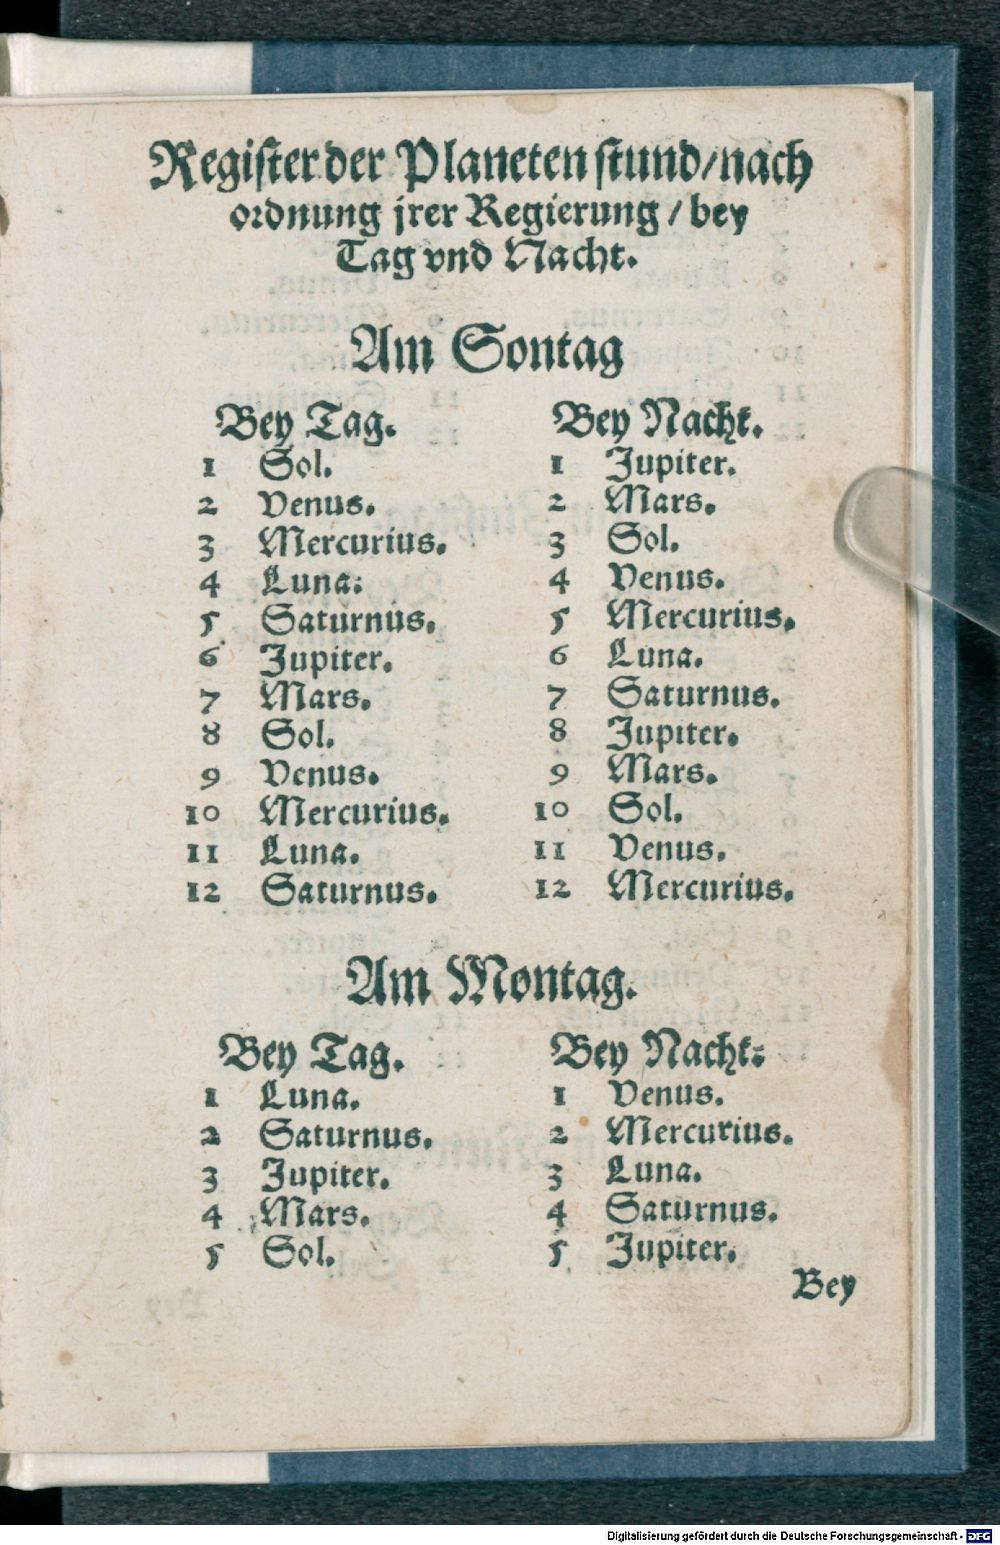 Register der Planeten stund/nach
ordnung jrer Regierung / bey
Tag vnd Nacht.
Am Sontag
Bey Tag.
1 Sol.
2 Venus.
3 Mercurius.
4 Luna:
5 Saturnus.
6 Jupiter.
7 Mars.
8 Sol.
9 Venus.
10 Mercurius.
11 Luna.
12 Saturnus.
Bey Nacht.
1 Jupiter.
2 Mars.
3 Sol.
4 Venus.
5 Mercurius.
6 Luna.
7 Saturnus.
8 Jupiter.
9 Mars.
10 Sol.
11 Venus.
12 Mercurius.
Am Montag.
Bey Tag.
1 Luna.
2 Saturnus.
3 Jupiter.
4 Mars.
5 Sol.
Bey Nacht:
1 Venus.
2 Mercurius.
3 Luna.
4 Saturnus.
5 Jupiter.
Bey
Digitalisierung gefördert durch die Deutsche Forschungsgemeinschaft - DFG